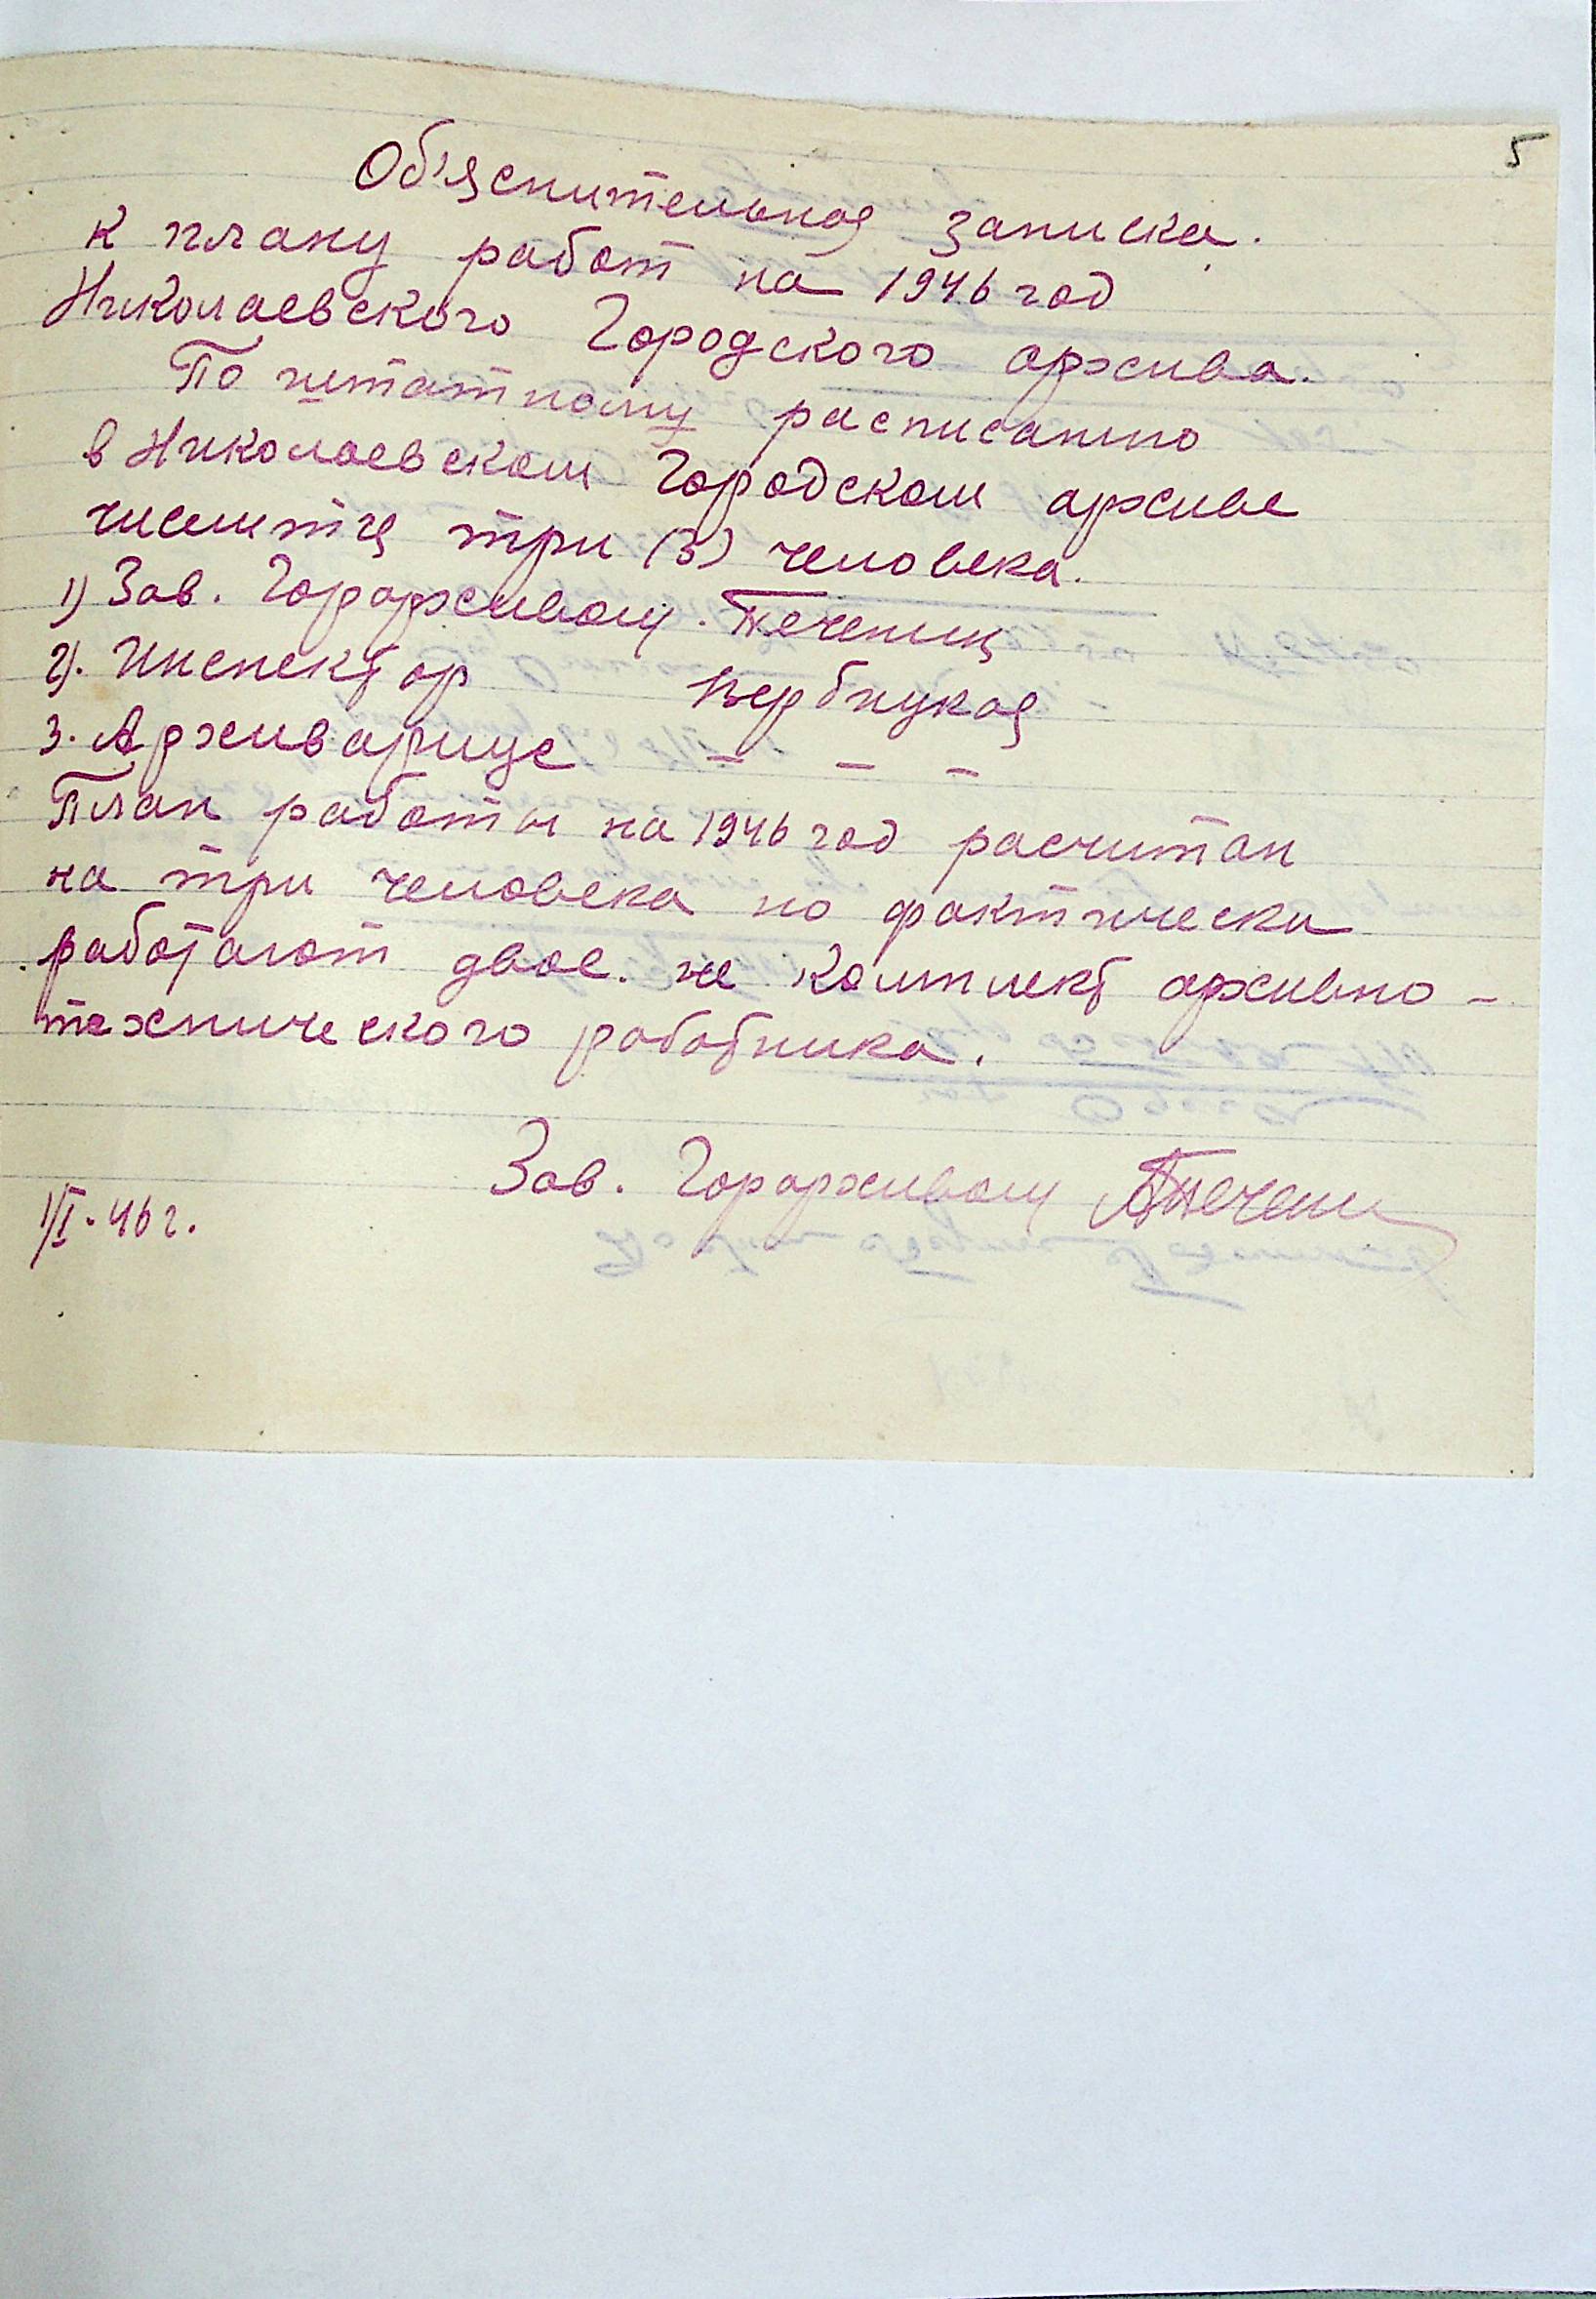 5
Об'яснительная записка.
к плану работ на 1946 год
Николаевского Городского архива.
По штатному расписанию
в Николаевском Городском архиве
числится три (3) человека.
1) Зав. Горархивом. Печениц
2). Инспектор Вербицкая
3. Архивариус — — —
План работы на 1946 год расчитан
на три человека но фактически
работают двое. не комплект архивно-
технического работника.
Зав. Горархивом
1/I-46 г.